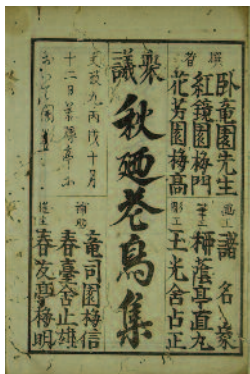 撰者
臥竜園先生
紅鏡園梅門
花芳園梅高
画工 諸名家
筆工 柳蔭亭直丸
彫工 玉光舎占正
衆議
秋廼花鳥集
文政九丙戌十月
十二日
竜司園梅信
春臺舎止雄
催主 春友亭梅明